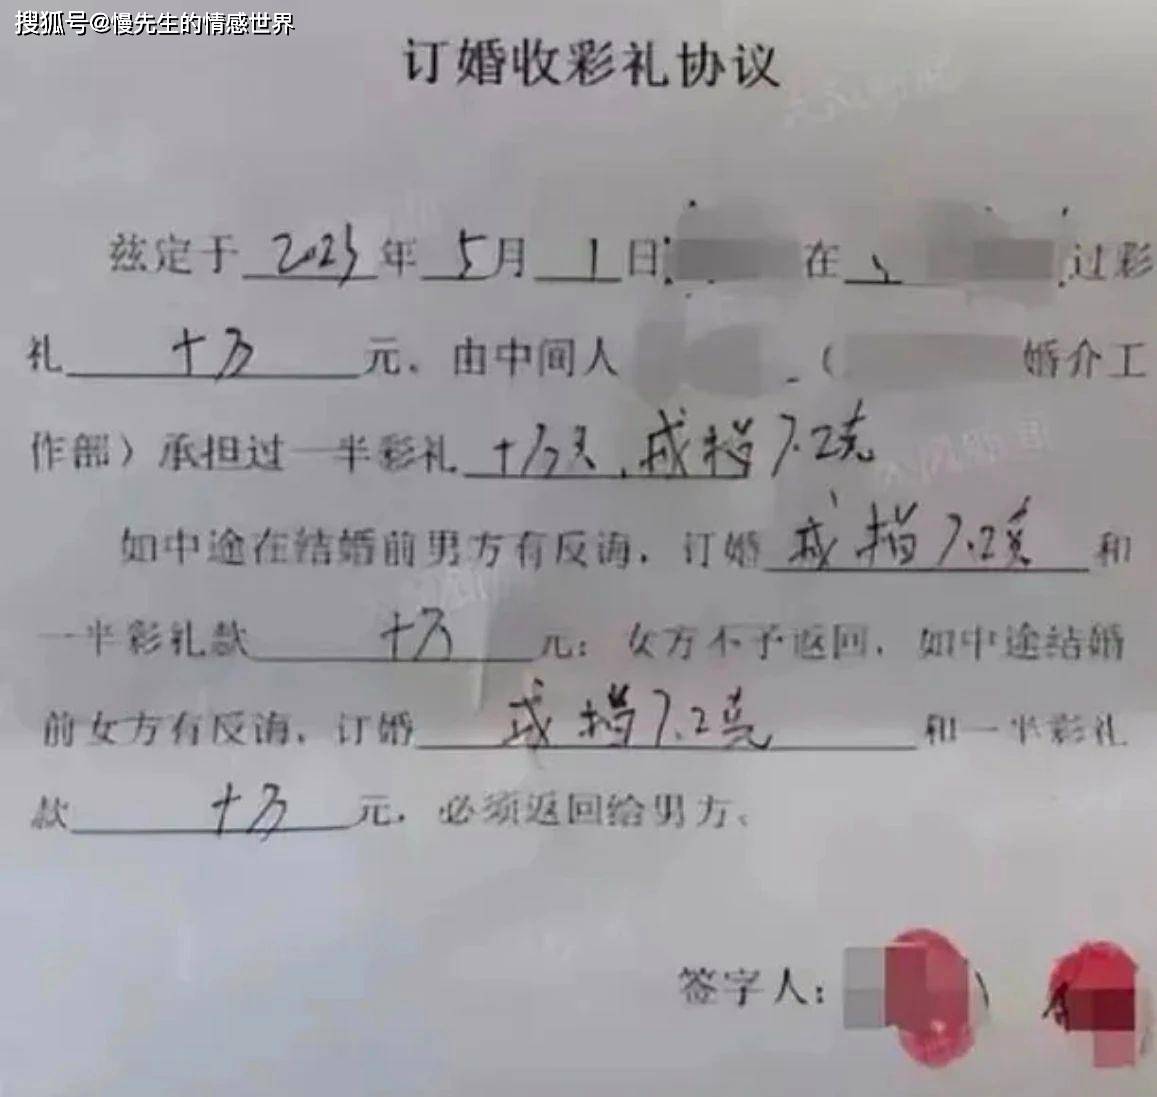 搜狐号@慢先生的情感世界
订婚收彩礼协议
兹定于 2023 年 5 月 1 日 在 过彩
礼 十万 元。由中间人 ( 婚介工
作部）承担过一半彩礼 十万元,戒指7.2克
如中途在结婚前男方有反诲，订婚 戒指7.2克 和
一半彩礼款 十万 元；女方不予返回，如中途结婚
前女方有反诲，订婚 戒指7.2克 和一半彩礼
款 十万 元，必须返回给男方。
签字人：